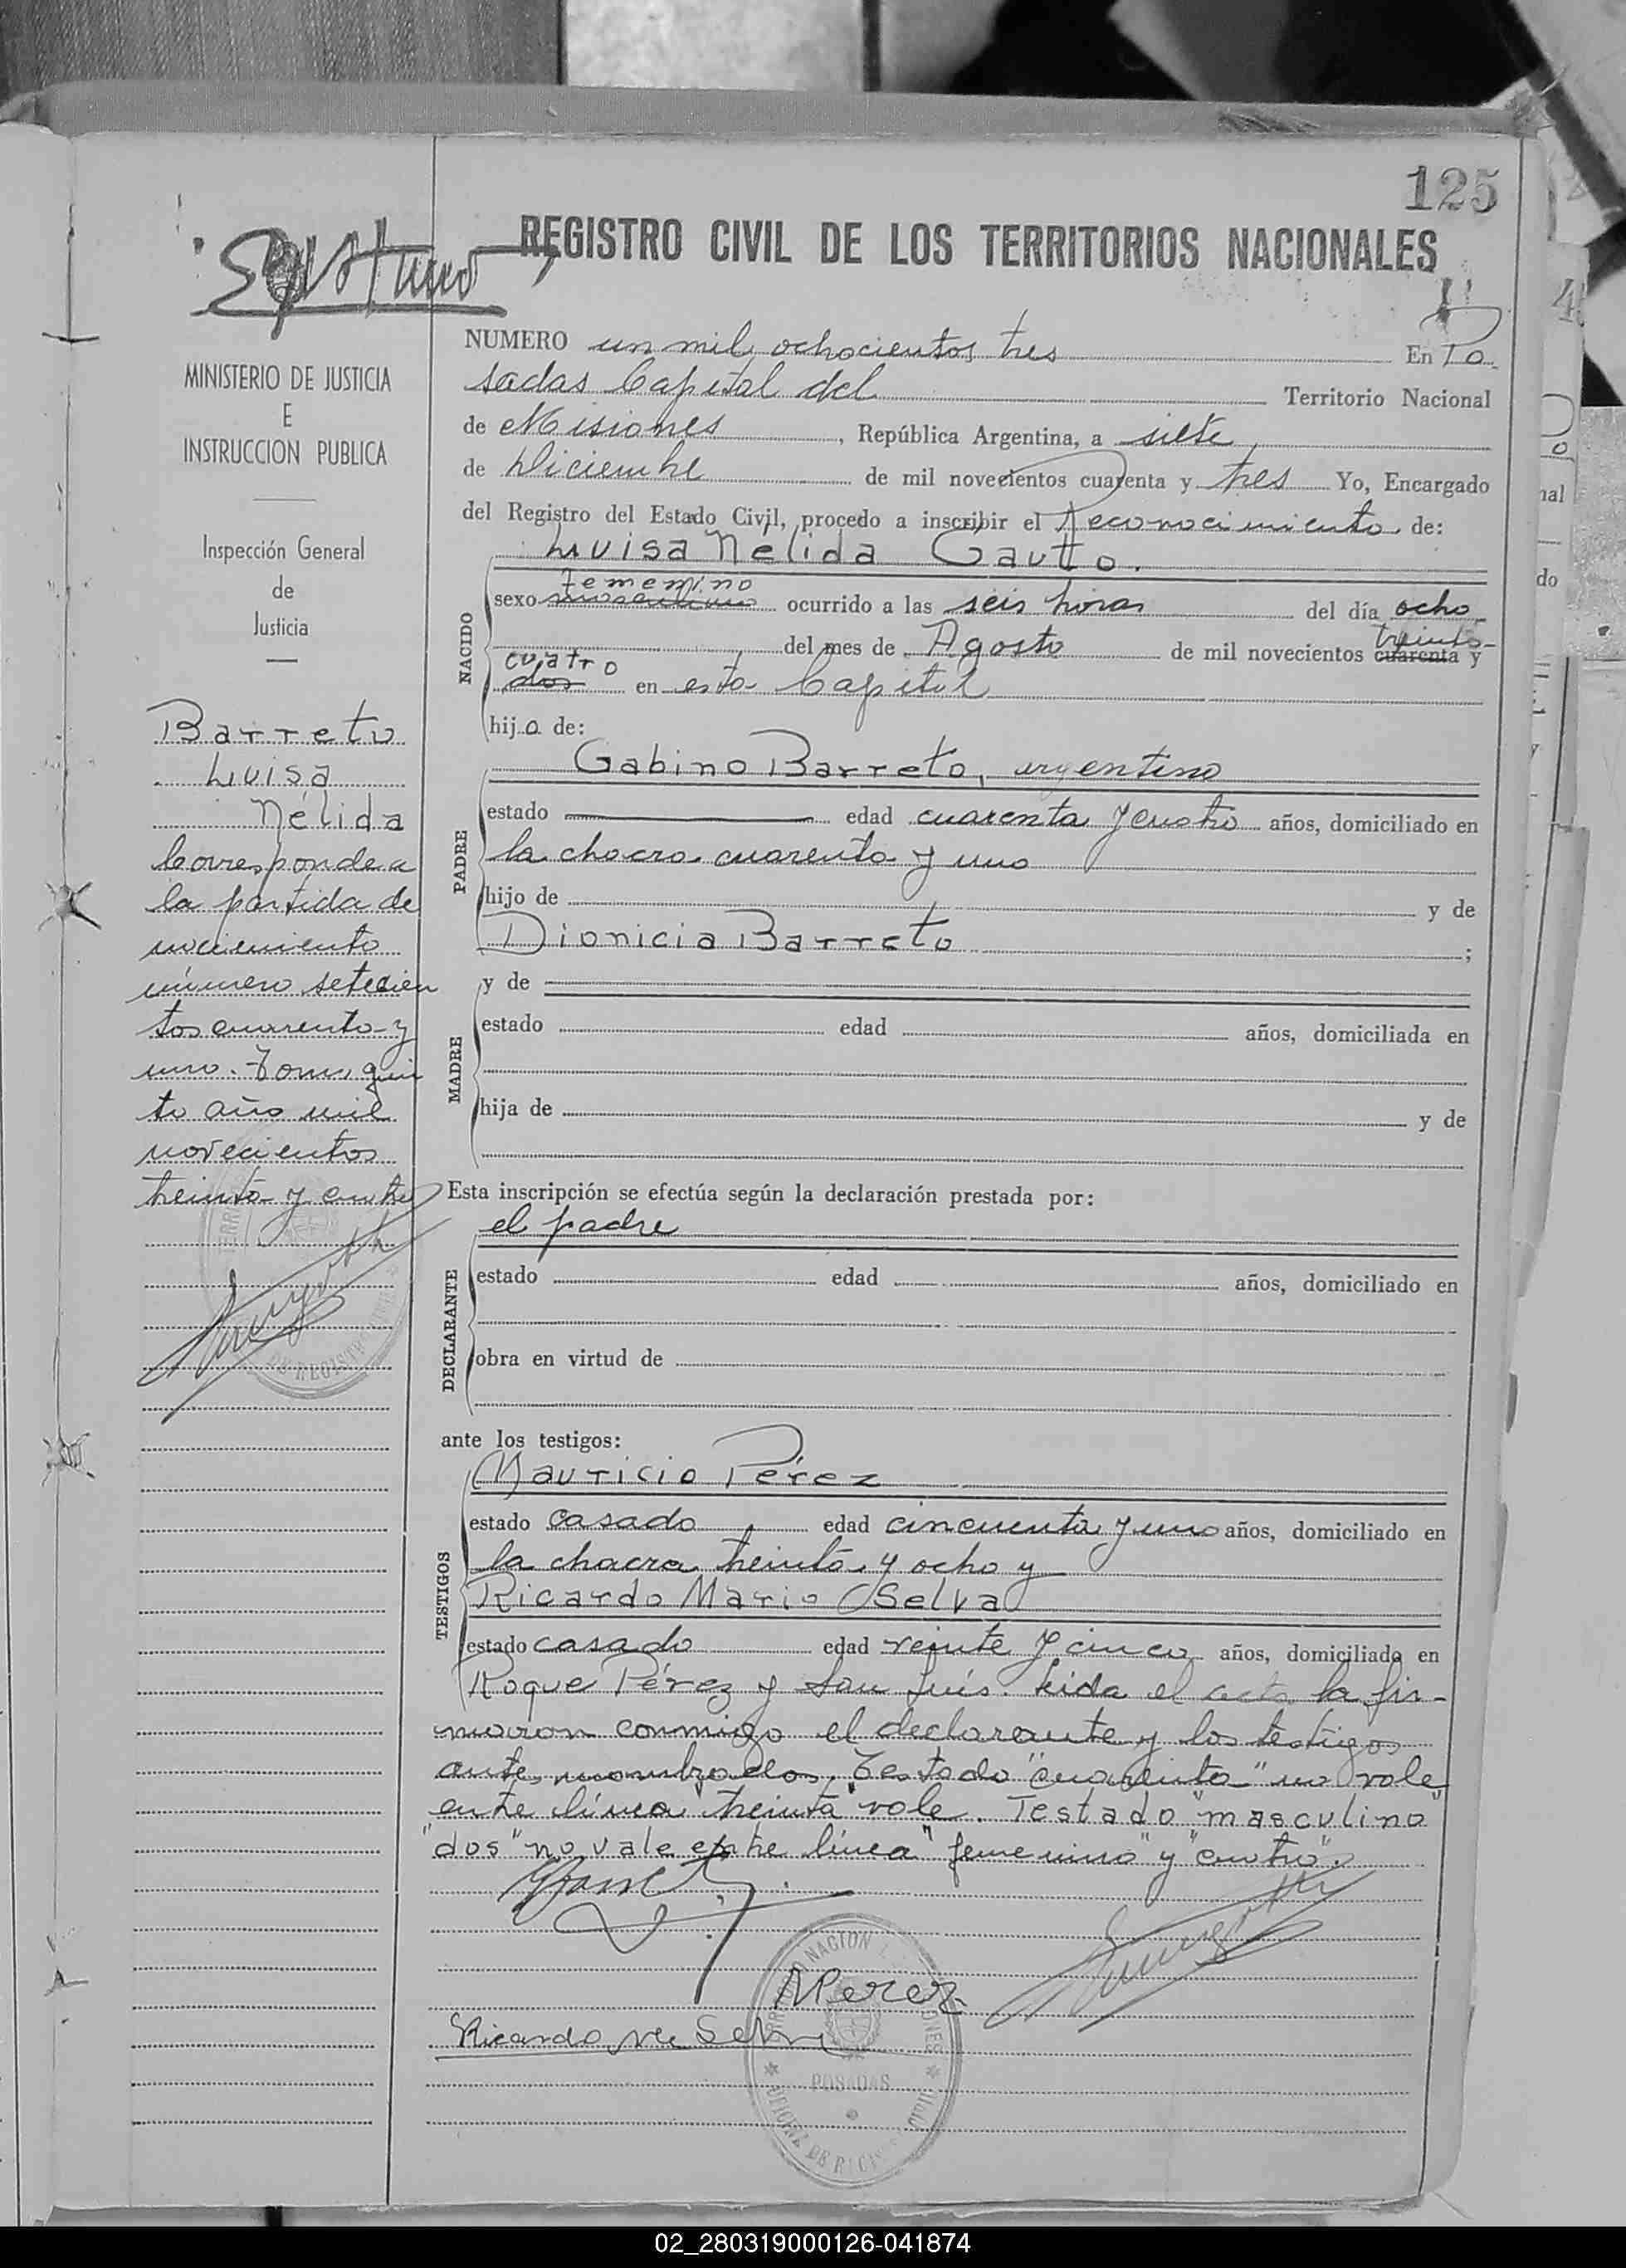 125
REGISTRO CIVIL DE LOS TERRITORIOS NACIONALES
MINISTERIO DE JUSTICIA
E
INSTRUCCION PUBLICA
Inspección General
de
Justicia
Barreto
Luisa
Nélida
Corresponde a
la partida de
nacimiento
número setecien
tos cuarenta y
uno. Tomo quin
to año mil
novecientos
treinta y cuatro
NUMERO un mil ochocientos tres En Po
sadas Capital del Territorio Nacional
de Misiones, República Argentina, a siete
de Diciembre de mil novecientos cuarenta y tres Yo, Encargado
del Registro del Estado Civil, procedo a inscribir el Reconocimiento de:
NACIDO
Luisa Nélida Gautto.
femenino
sexo masculino ocurrido a las seis horas del día ocho
treinta
del mes de Agosto de mil novecientos cuarenta y
cuatro
dos en esta Capital
hija de:
PADRE
Gabino Barreto, argentino
estado edad cuarenta y cuatro años, domiciliado en
la chacra cuarenta y uno
hijo de y de
Dionicia Barreto ;
MADRE
y de
estado edad años, domiciliada en
hija de y de
Esta inscripción se efectúa según la declaración prestada por:
DECLARANTE
el padre
estado edad años, domiciliado en
obra en virtud de
ante los testigos:
TESTIGOS
Mauricio Pérez
estado casado edad cincuenta y uno años, domiciliado en
la chacra treinta y ocho y
Ricardo Mario Selva
estado casado edad veinte y cinco años, domiciliado en
Roque Pérez y San Luis. Leida el acta la fir-
maron conmigo el declarante y los testigos
ante nombrados. Testado "cuarenta" no vale
entre línea "treinta" vale. Testado "masculino"
"dos" no vale entre línea "femenino" y "cuatro".
MPerez
Ricardo M Selva
POSADAS
02_280319000126-041874